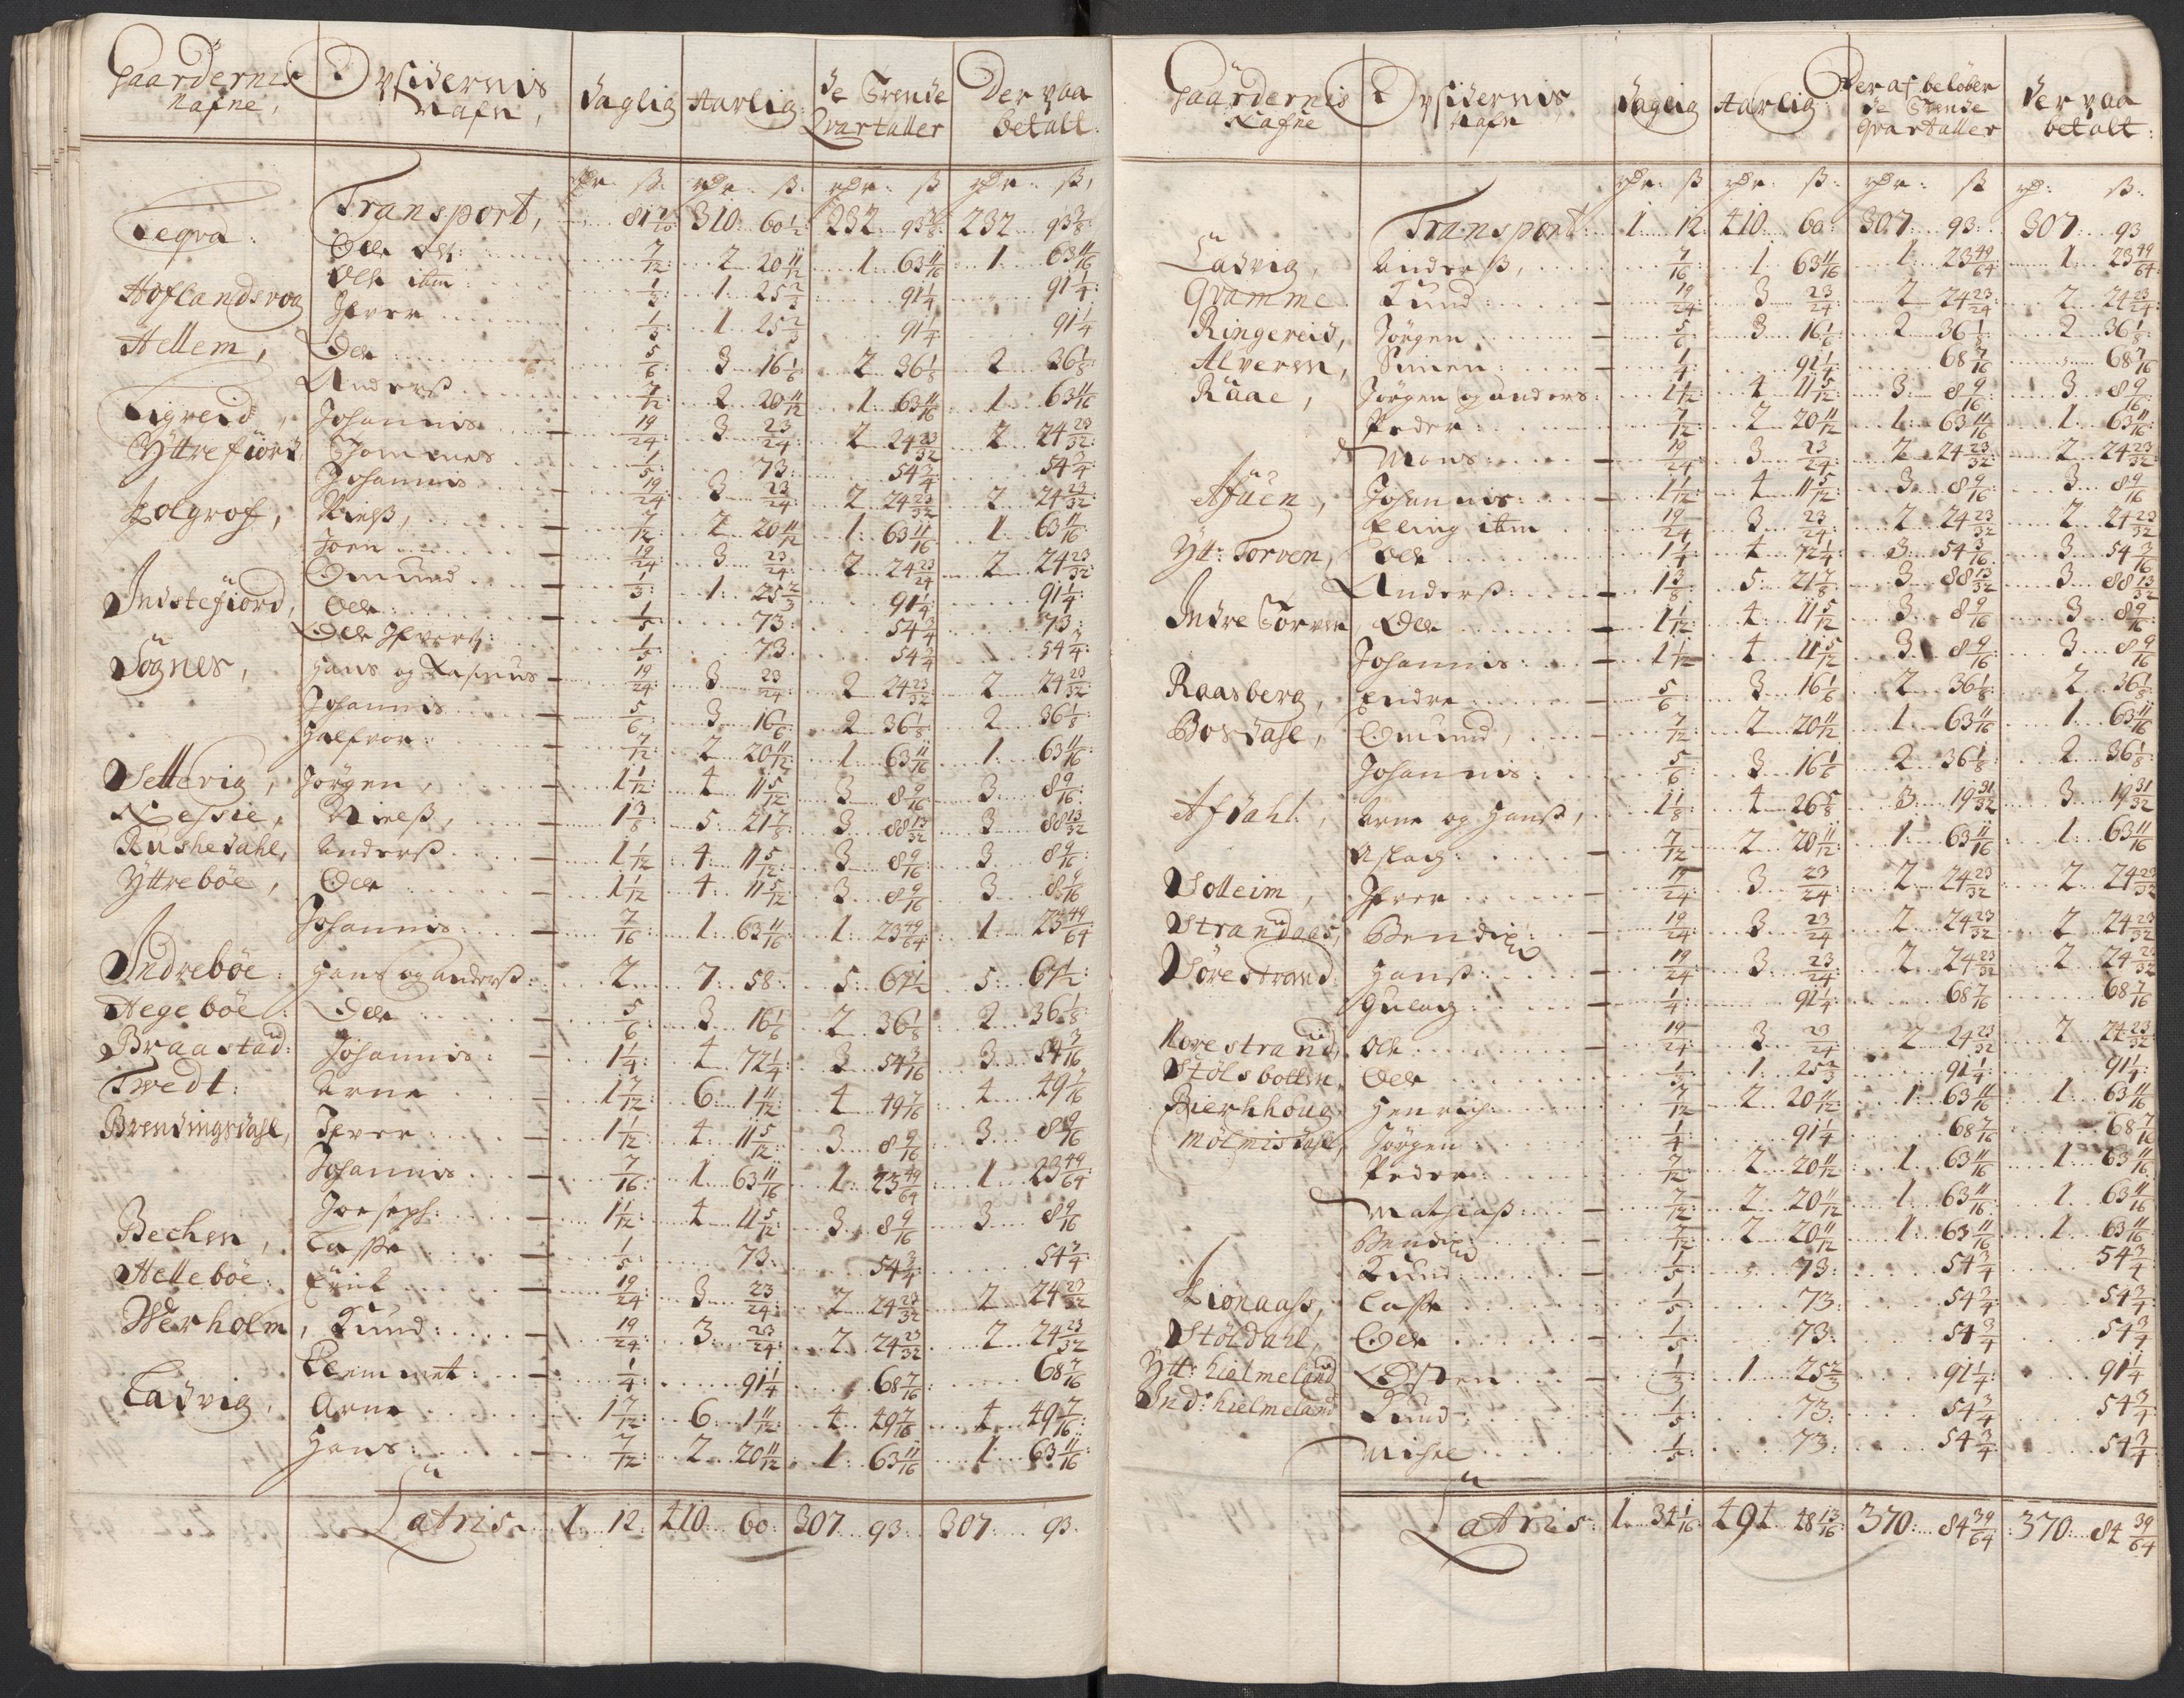 Gaardernis Nafne, Opsidernis Nafn, Daglig Aarlig de Trende Qvartaller Der paa betalt:
rdr: ß: rdr: ß: rdr: ß rdr: ß,
Transport, 81 7/20 310: 60 1/2 232 93 3/8 232 93 3/8
Tegva: Ole 7/12 2 20 11/12 1 63 11/16 1 63 11/16
Ole ibm 1/3 1 25 2/3 91 1/4 91 1/4
Hoflandsvog Ifver 1/3 1 25 2/3 91 1/4 91 1/4
Hellem, Ole 5/6 3 16 1/6 2 36 1/8 2 36 1/8
Anderß 7/12 2 20 11/12 1 63 11/16 1 63 11/16
Tigreid, Johannis 19/24 3 23/24 2 24 23/32 2 24 23/32
Yttrefiord, Thommes 1/5 73 54 3/4 54 3/4
Johannis 19/24 3 23/24 2 24 23/32 2 24 23/32
Holgrof, Nielß, 7/12 2 20 11/12 1 63 11/16 1 63 11/16
Joen 19/24 3 23/24 2 24 23/24 2 24 23/32
Omund 1/3 1 25 2/3 91 1/4 91 1/4
Indstefiord, Ole 1/5 73 54 3/4 73
Ole Ifvers: 1/5 73 54 3/4 54 3/4
Sognes, Hans og Rasmus 19/24 3 23/24 2 24 23/32 2 24 23/32
Johannis 5/6 3 16 1/6 2 36 1/8 2 36 1/8
Halfvor 7/12 2 20 11/12 1 63 11/16 1 63 11/16
Vettevig, Jørgen, 1 1/12 4 11 5/12 3 8 9/16 3 8 9/16
Nessie, Nielß, 1 3/8 5 21 7/8 3 88 13/32 3 88 13/32
Rushedahl, Anderß 1 1/12 4 11 5/12 3 8 9/16 3 8 9/16
Yttrebøe, Ole 1 1/12 4 11 5/12 3 8 9/16 3 8 9/16
Johannis 7/16 1 63 11/16 1 23 49/64 1 23 49/64
Indrebøe: Hans og Anderß: 2 7 58 5 67 1/2 5 67 1/2
Hegebøe: Ole 5/6 3 16 1/6 2 36 1/8 2 36 1/8
Braastad: Johannis: 1 1/4 4 72 1/4 3 54 3/16 3 54 3/16
Twedt: Arne 1 7/12 6 1 11/12 4 49 7/16 4 49 7/16
Brendingsdahl, Ifver 1 1/12 4 11 5/12 3 8 9/16 3 8 9/16
Johannis 7/16 1 63 11/16 1 23 49/64 1 23 49/64
Joeseph: 1 1/12 4 11 5/12 3 8 9/16 3 8 9/16
Bechen, Lasse 1/5 73 54 3/4 54 3/4
Hellebøe: Erik 19/24 3 23/24 2 24 23/32 2 24 23/32
Werholm, Knud: 19/24 3 23/24 2 24 23/32 2 24 23/32
Clemmet: 1/4 91 1/4 68 7/16 68 7/16
Ladvig, Arne 1 7/12 6 1 11/12 4 49 7/16 4 49 7/16
Hans: 7/12 2 20 11/12 1 63 11/16 1 63 11/16
Latris 1 12 410 60 307 93 307 93
Gaardernis Nafne Opsidernis Nafn Daglig Aarlig Deraf beløber de Trende qvartaller Der paa betalt:
rdr: ß rdr: ß: rdr: ß rd: ß:
Transport 1 12 410 60 307 93 307 93
Ladvig, Anderß, 7/16 1 63 11/16 1 23 49/64 1 23 49/64
Qvamme Knud 19/24 3 23/24 2 24 23/24 2 24 23/24
Ringereid, Jørgen 5/6 3 16 1/6 2 36 1/8 2 36 1/8
Alveren, Simen: 1/4 91 1/4 68 7/16 68 7/16
Raae, Jørgen og Anders: 1 1/12 4 11 5/12 3 8 9/16 3 8 9/16
Peder 7/12 2 20 11/12 1 63 11/16 1 63 11/16
Mons 19/24 3 23/24 2 24 23/32 2 24 23/32
Afuen, Johannis: 1 1/12 4 11 5/12 3 8 9/16 3 8 9/16
Elling ibm 19/24 3 23/24 2 24 23/32 2 24 23/32
Ytt: Torven, Ole 1 1/4 4 72 1/4 3 54 3/16 3 54 3/16
Anderß: 1 3/8 5 21 7/8 3 88 13/32 3 88 13/32
Indre Torven Ole 1 1/12 4 11 5/12 3 8 9/16 3 8 9/16
Johannis: 1 1/12 4 11 5/12 3 8 9/16 3 8 9/16
Raasberg, Endre 5/6 3 16 1/6 2 36 1/8 2 36 1/8
Bosdahl, Omund, 7/12 2 20 11/12 1 63 11/16 1 63 11/16
Johannis 5/6 3 16 1/6 2 36 1/8 2 36 1/8
Afdahl, Arne og Hanß, 1 1/8 4 26 5/8 3 19 31/32 3 19 31/32
Aslag: 7/12 2 20 11/12 1 63 11/16 1 63 11/16
Solleim, Ifver 19/24 3 23/24 2 24 23/32 2 24 23/32
Strandaas, Bendix 19/24 3 23/24 2 24 23/32 2 24 23/32
Sørestrand: Hanß 19/24 3 23/24 2 24 23/32 2 24 23/32
Gulag 1/4 91 1/4 68 7/16 68 7/16
Norestrand, Ole 19/24 3 23/24 2 24 23/32 2 24 23/32
Stølsbotten, Ole 1/3 1 25 2/3 91 1/4 91 1/4
Bierkhoug Henrich 7/12 2 20 11/12 1 63 11/16 1 63 11/16
Mølmisdahl, Jørgen 1/4 91 1/4 68 7/16 68 7/16
Peder 7/12 2 20 11/12 1 63 11/16 1 63 11/16
Mathiaß 7/12 2 20 11/12 1 63 11/16 1 63 11/16
Bendix 7/12 2 20 11/12 1 63 11/16 1 63 11/16
Knud 1/5 73 54 3/4 54 3/4
Lionaaß, Lasse 1/5 73 54 3/4 54 3/4
Støldahl, Ole 1/5 73 54 3/4 54 3/4
Ytt: hielmeland Østen 1/3 1 25 2/3 91 1/4 91 1/4
Ind: hielmeland Knud 1/5 73 54 3/4 54 3/4
Michel 1/5 73 54 3/4 54 3/4
Latris: 1 34 1/16 494 48 13/16 370 84 39/64 370 84 39/64